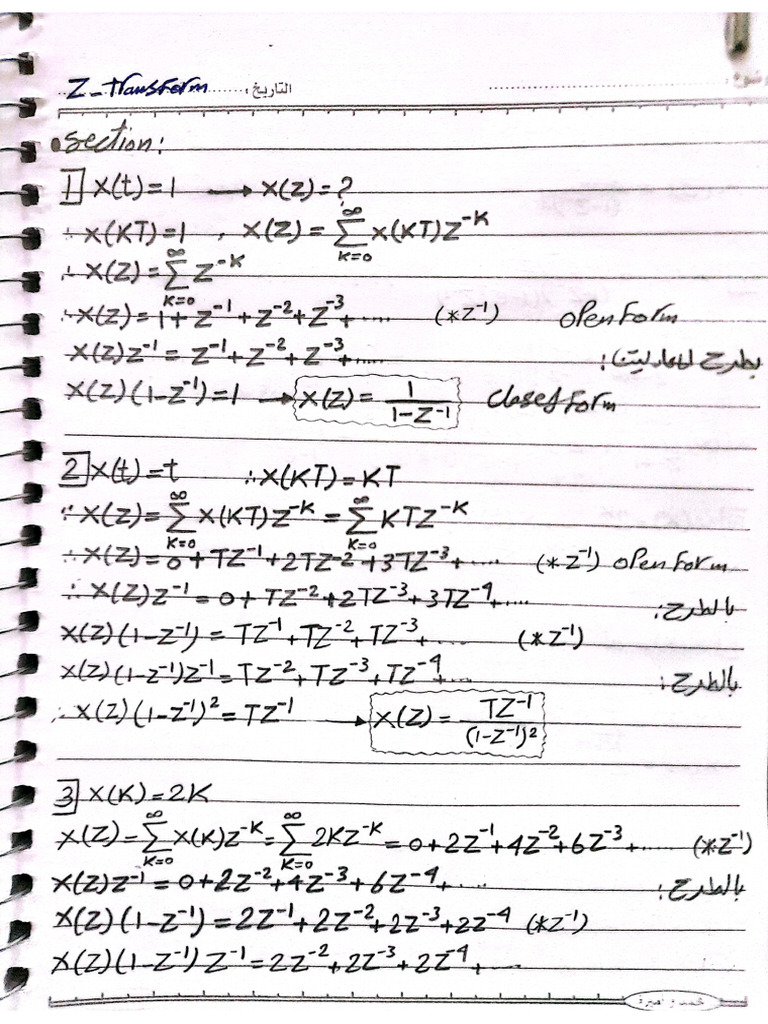 Z-transform التاريخ :
section:
1 X(t)=1 → X(Z)=?
∴ X(KT)=1 , X(Z)=∑_{K=0}^{∞} X(KT)Z^{-K}
∴ X(Z)=∑_{K=0}^{∞} Z^{-K}
∴ X(Z)=1+Z^{-1}+Z^{-2}+Z^{-3}+..... (*Z^{-1}) open form
X(Z)Z^{-1}=Z^{-1}+Z^{-2}+Z^{-3}+..... بطرح المعادلتين :
X(Z)(1-Z^{-1})=1 → X(Z)=1/(1-Z^{-1}) closed form
2 X(t)=t ∴ X(KT)=KT
∵ X(Z)=∑_{K=0}^{∞} X(KT)Z^{-K}=∑_{K=0}^{∞} KTZ^{-K}
∴ X(Z)=0+TZ^{-1}+2TZ^{-2}+3TZ^{-3}+..... (*Z^{-1}) open form
∴ X(Z)Z^{-1}=0+TZ^{-2}+2TZ^{-3}+3TZ^{-4}+..... بالطرح :
X(Z)(1-Z^{-1})=TZ^{-1}+TZ^{-2}+TZ^{-3}+..... (*Z^{-1})
X(Z)(1-Z^{-1})Z^{-1}=TZ^{-2}+TZ^{-3}+TZ^{-4}+..... بالطرح :
∴ X(Z)(1-Z^{-1})^2=TZ^{-1} → X(Z)=TZ^{-1}/(1-Z^{-1})^2
3 X(K)=2K
X(Z)=∑_{K=0}^{∞} X(K)Z^{-K}=∑_{K=0}^{∞} 2KZ^{-K}=0+2Z^{-1}+4Z^{-2}+6Z^{-3}+..... (*Z^{-1})
X(Z)Z^{-1}=0+2Z^{-2}+4Z^{-3}+6Z^{-4}+..... بالطرح :
X(Z)(1-Z^{-1})=2Z^{-1}+2Z^{-2}+2Z^{-3}+2Z^{-4} (*Z^{-1})
X(Z)(1-Z^{-1})Z^{-1}=2Z^{-2}+2Z^{-3}+2Z^{-4}+.....